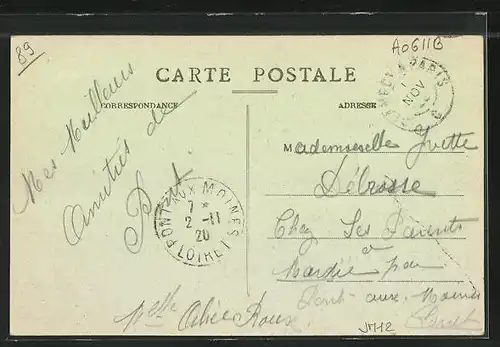 89
A0611B
CARTE POSTALE
CORRESPONDANCE
ADRESSE
Mes Meilleures
Amitiés de
PONT-AUX-MOINES
7 *
2 - 11
20
LOIRET
PARIS
NOV
Mademoiselle Yvette
Délrosse
Chez Ses Parents
a
Mardié par
Pont-aux-Moines
Loiret
JM12